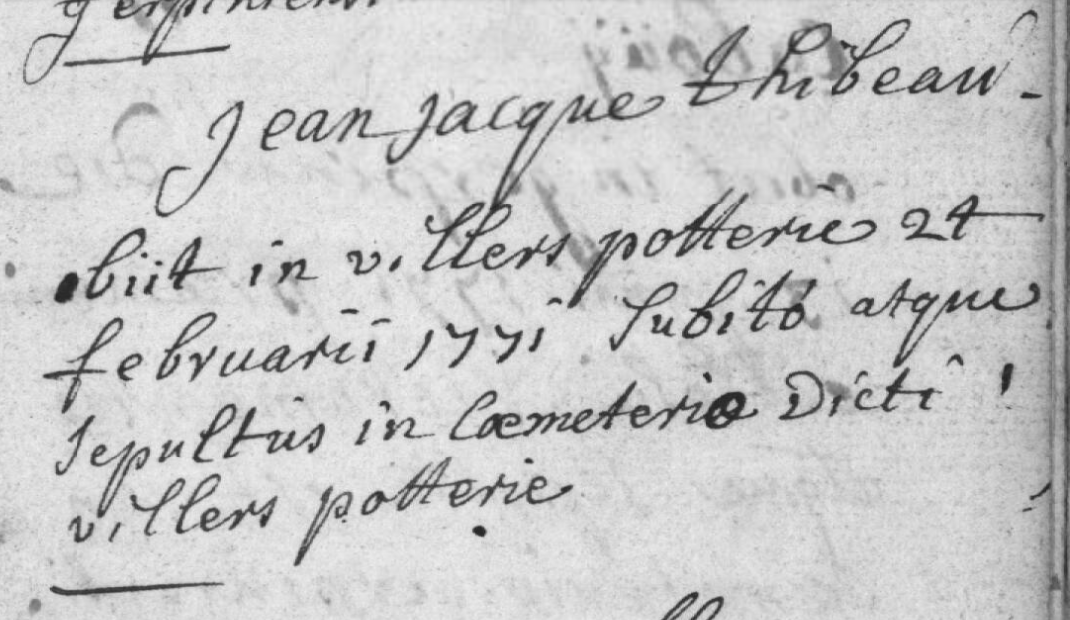 gerpiniensi
Jean jacque thibeau -
obiit in villers potterie 24
februarii 1771 Subitò atque
sepultus in Coemeterio Dicti
villers potterie